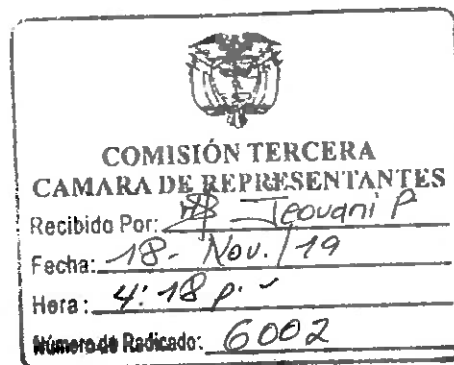 COMISIÓN TERCERA
CAMARA DE REPRESENTANTES
Recibido Por: Jeovani P
Fecha: 18- Nov. / 19
Hora: 4:18 p.
Número de Radicado: 6002